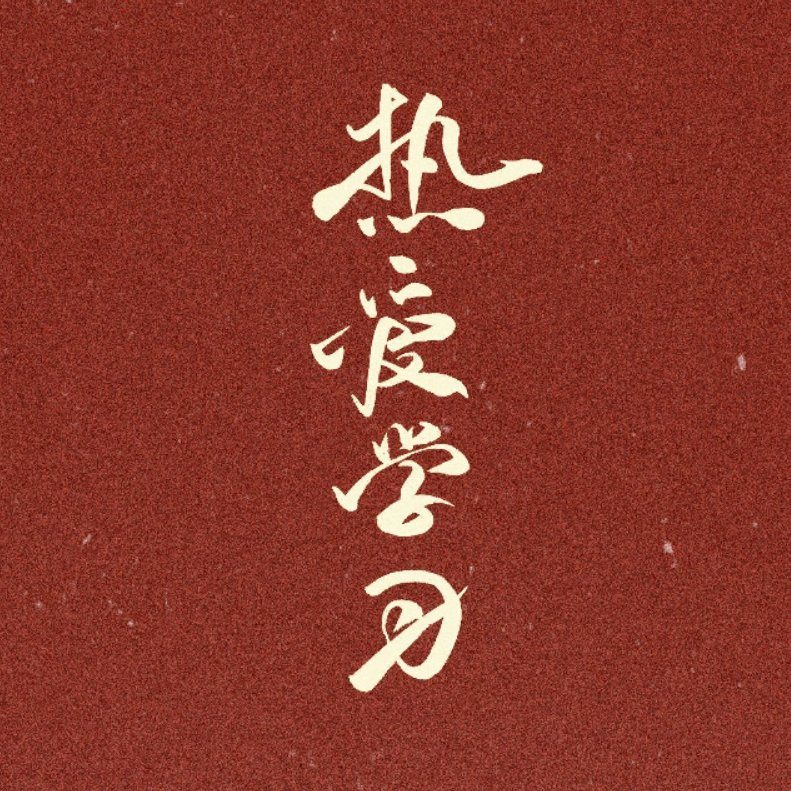 热爱学习